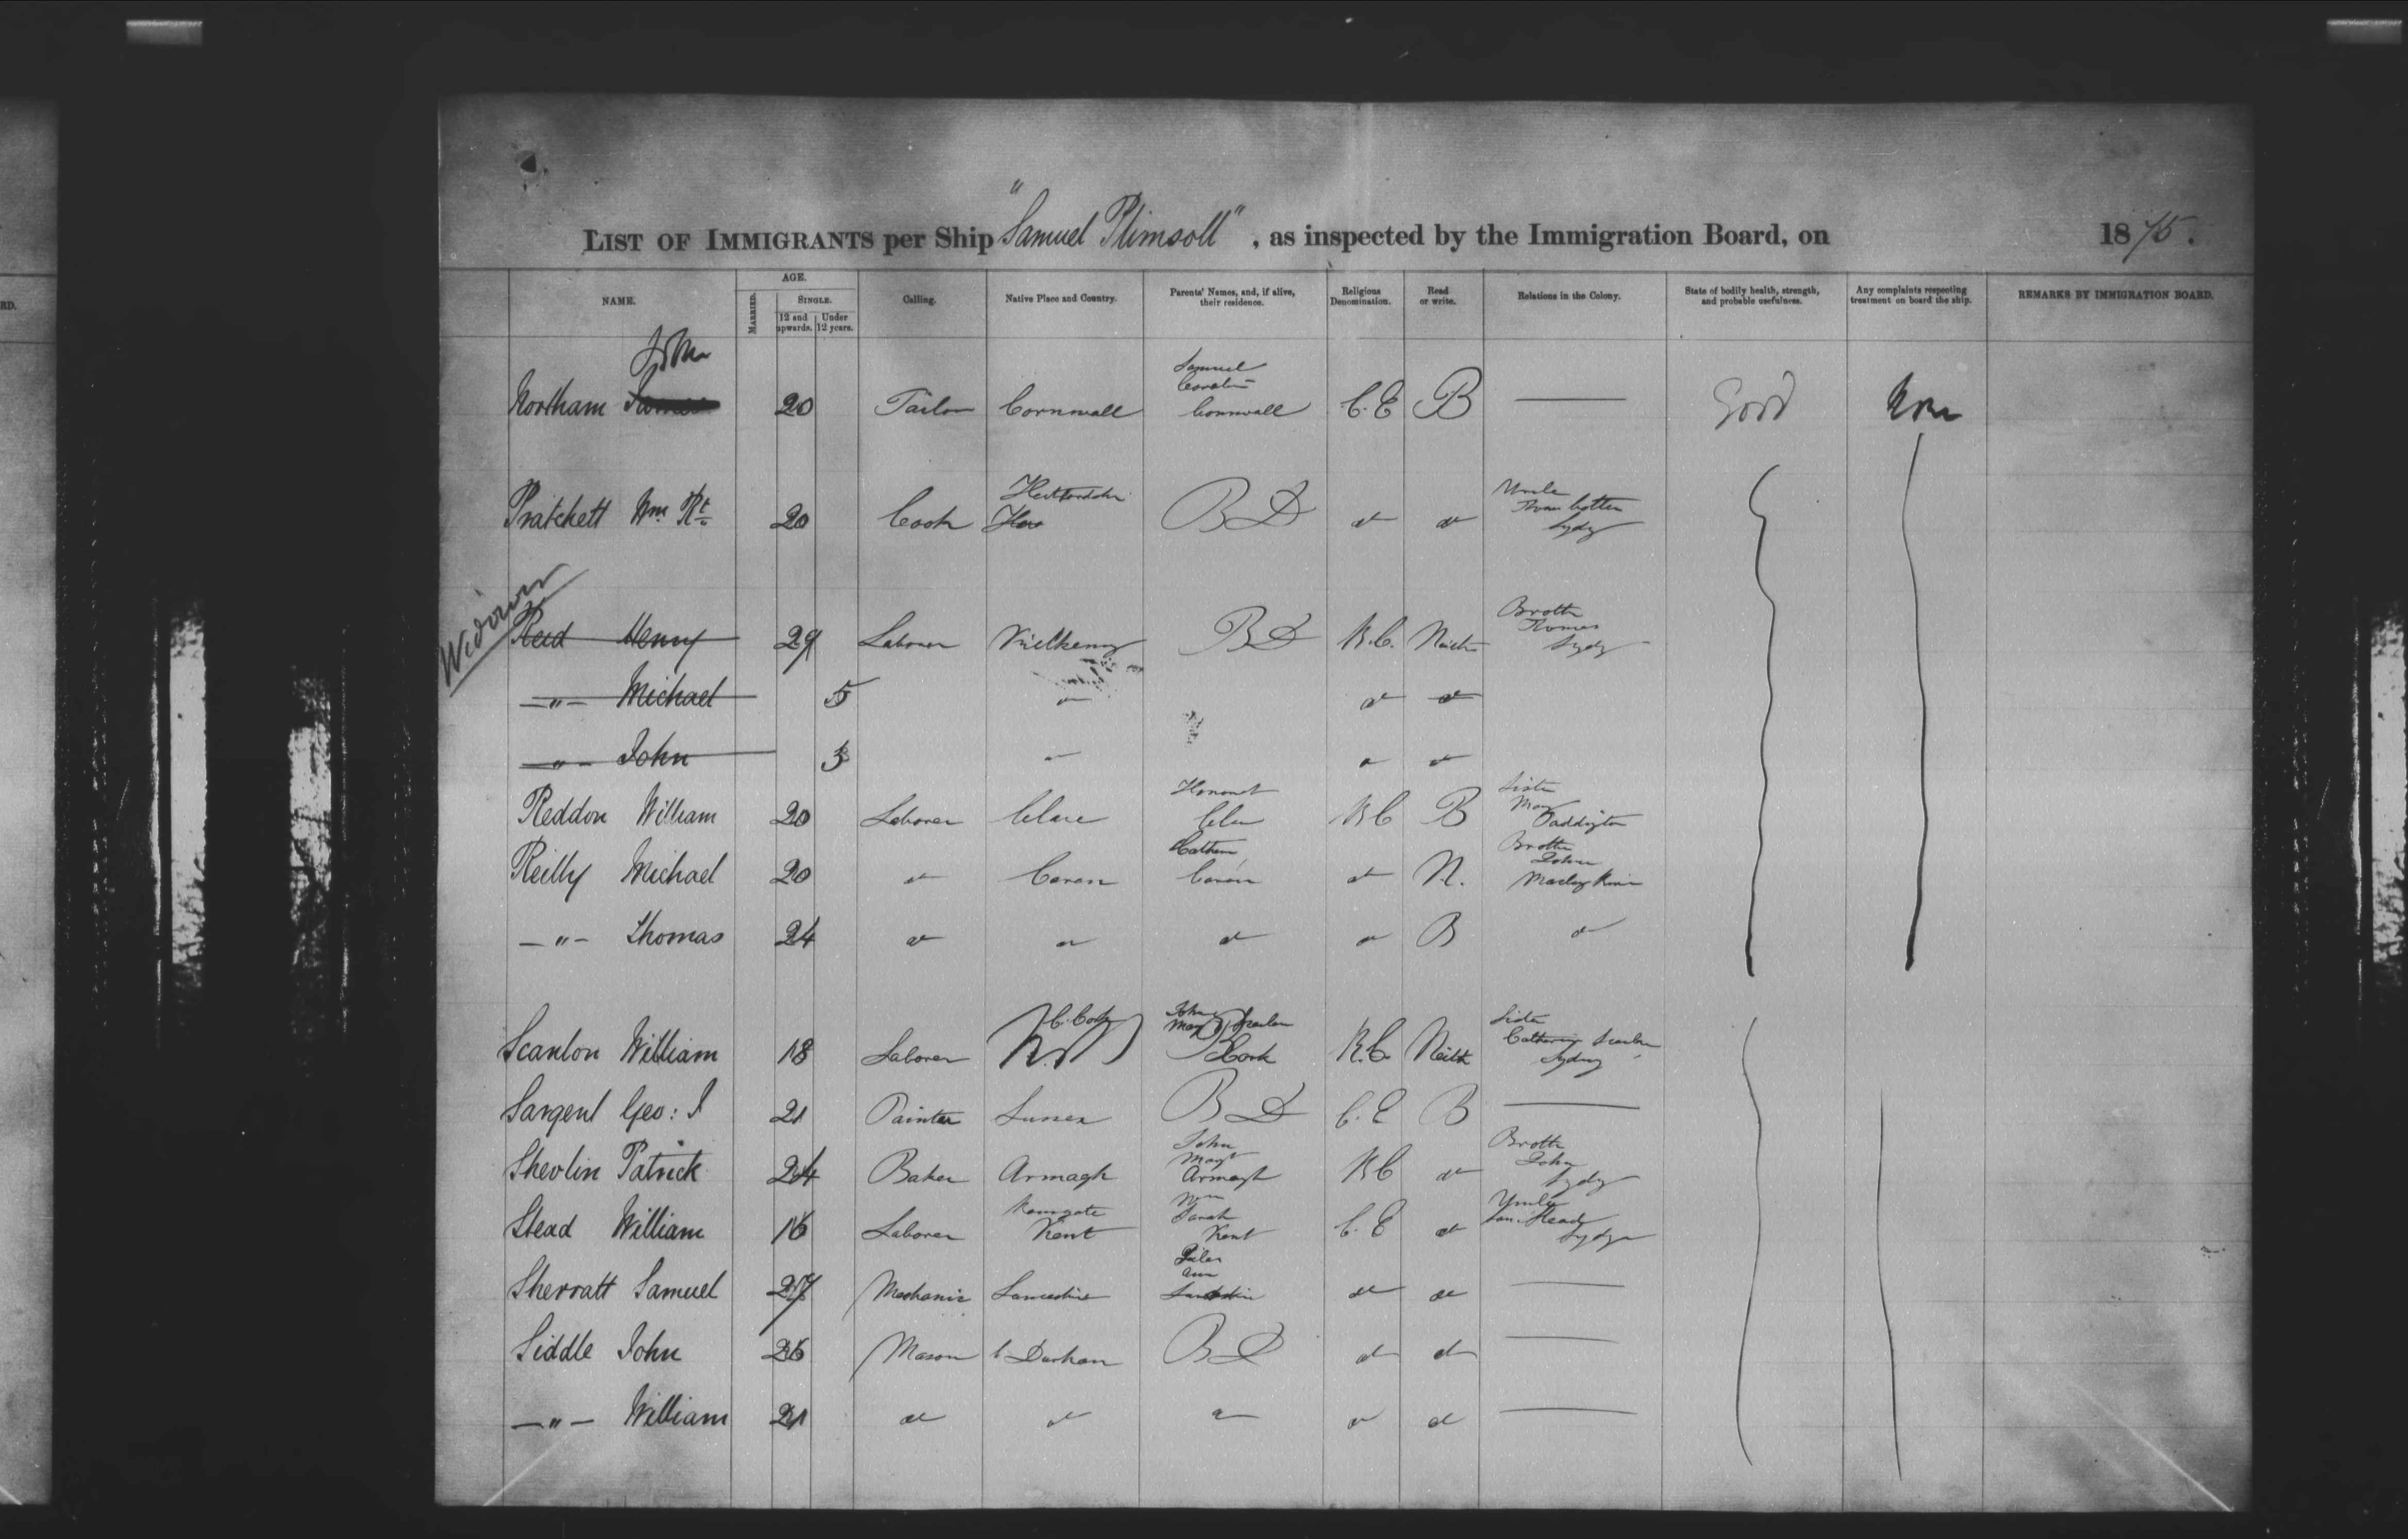 LIST OF IMMIGRANTS per Ship "Samuel Plimsoll", as inspected by the Immigration Board, on 1875.
RD.
NAME. MARRIED. AGE. SINGLE. 12 and upwards. Under 12 years. Calling. Native Place and Country. Parents' Names, and, if alive, their residence. Religious Denomination. Read or write. Relations in the Colony. State of bodily health, strength, and probable usefulness. Any complaints respecting treatment on board the ship. REMARKS BY IMMIGRATION BOARD.
John
Northam 20 Tailor Cornwall Samuel Cornwall C.E B — Good None
Pratchett Wm Rt 20 Cook BD do do Uncle Sydy
Widower
Reid Henry 29 Laborer Kilkenny BD R.C. Neith Brothr Thomas Sydy
—"— Michael 5 do do do
—"— John 3 do do do
Reddon William 20 Laborer Clare Clare RC B Sister Mary Paddington
Reilly Michael 20 do Cavan Cavan do N. Brothr John
—"— Thomas 24 do do do do B do
Scanlon William 18 Laborer C. Cork John Mary Scanlon Cork R.C. Neith Sister Catherine Scanlon Sydney
Sargent Geo: I 21 Painter Sussex BD C.E B —
Shevlin Patrick 24 Baker Armagh John Margt Armagh RC do Brothr John Sydy
Stead William 16 Laborer Ramsgate Kent Wm Sarah Kent C.E do Uncle Stead Sydy
Sherratt Samuel 27 Mechanic Lancashire Ann Lancashire do do —
Siddle John 26 Mason C Durham BD do do —
—"— William 21 do do do do do —